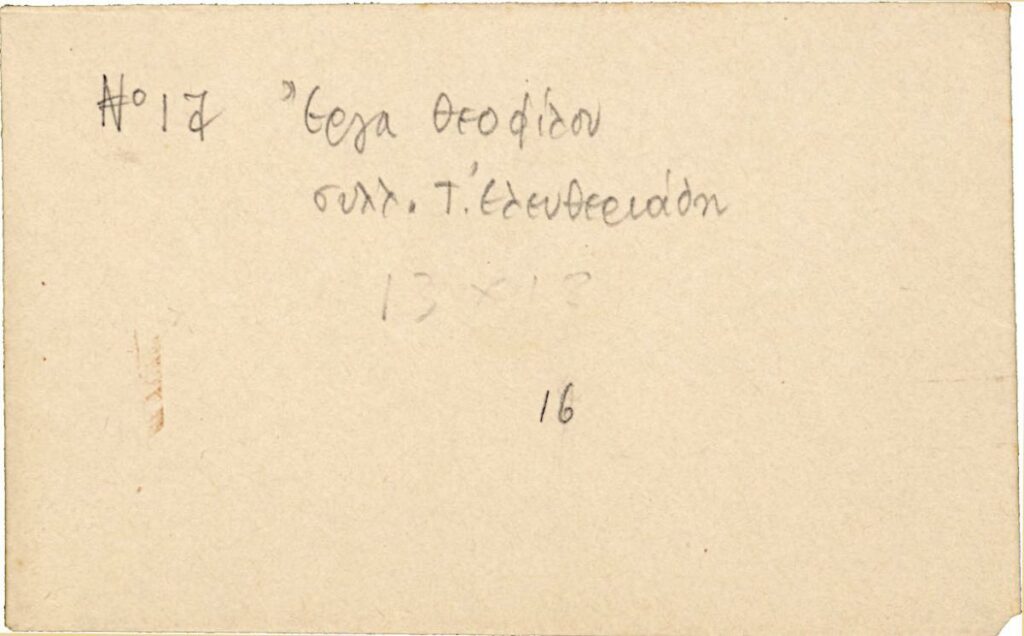 Νο 17 Έργα Θεοφίλου
συλλ. Τ. Ελευθεριάδη
13 x 13
16